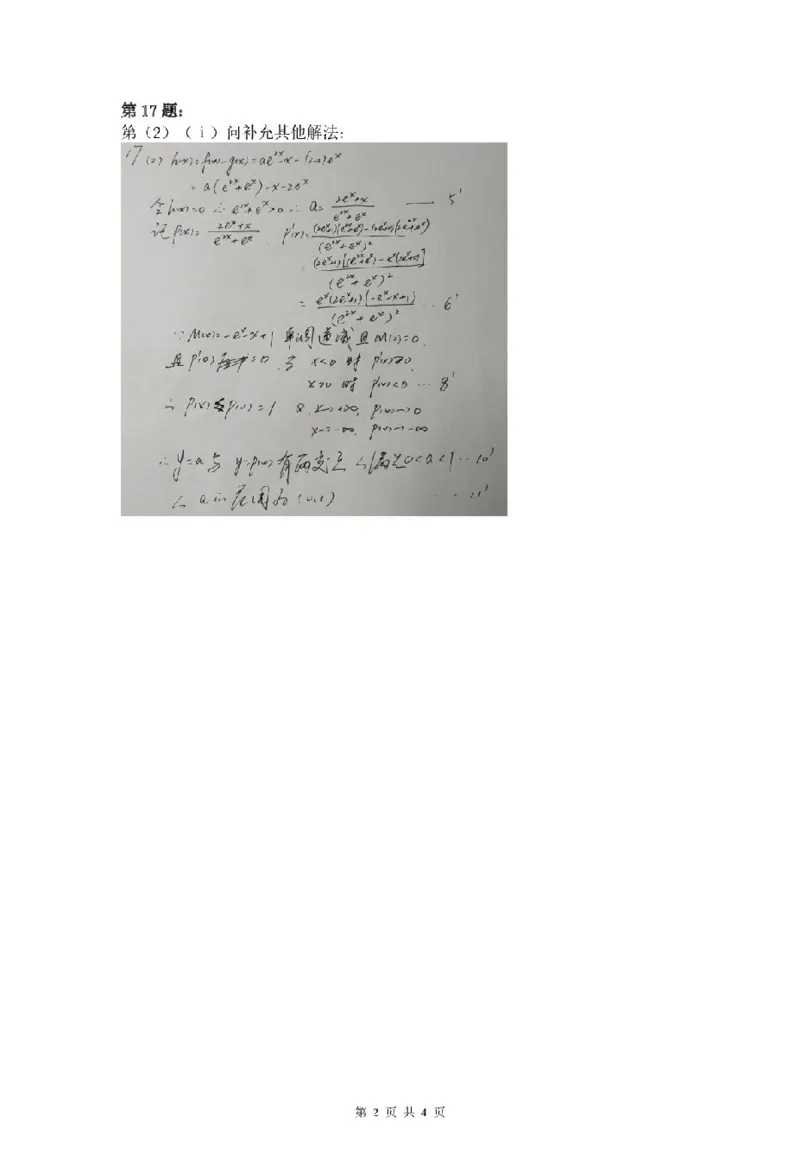 第 17 题:
第（2）（ⅰ）问补充其他解法:
17 (2) h(x)=f(x)-g(x)=ae^{2x}-x-(2-a)e^x
=a(e^{2x}+e^x)-x-2e^x
令h(x)=0 ∴ e^{2x}+e^x>0 ∴ a=\frac{2e^x+x}{e^{2x}+e^x} —— 5'
记P(x)=\frac{2e^x+x}{e^{2x}+e^x}. P'(x)=\frac{(2e^x+1)(e^{2x}+e^x)-(2e^x+x)(2e^{2x}+e^x)}{(e^{2x}+e^x)^2}
=\frac{(2e^x+1)[(e^{2x}+e^x)-e^x(2e^x+x)]}{(e^{2x}+e^x)^2}
=\frac{e^x(2e^x+1)(-e^x-x+1)}{(e^{2x}+e^x)^2} ·· 6'
∵ M(x)=-e^x-x+1 单调递减且M(0)=0.
且P'(0)=0. 当 x<0 时 P'(x)>0
x>0 时 P'(x)<0 ··· 8'
∴ P(x)≤P(0)=1 又 x→+∞, P(x)→0
x→-∞. P(x)→-∞
∴ y=a 与 y=P(x)有两交点 ∴满足0<a<1 ·· 10'
∴ a的范围为(0,1) ···· 11'
第 2 页 共 4 页